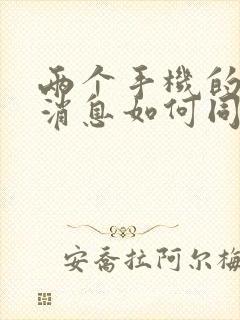 两个手機的
消息如何同
安喬拉阿尔梅